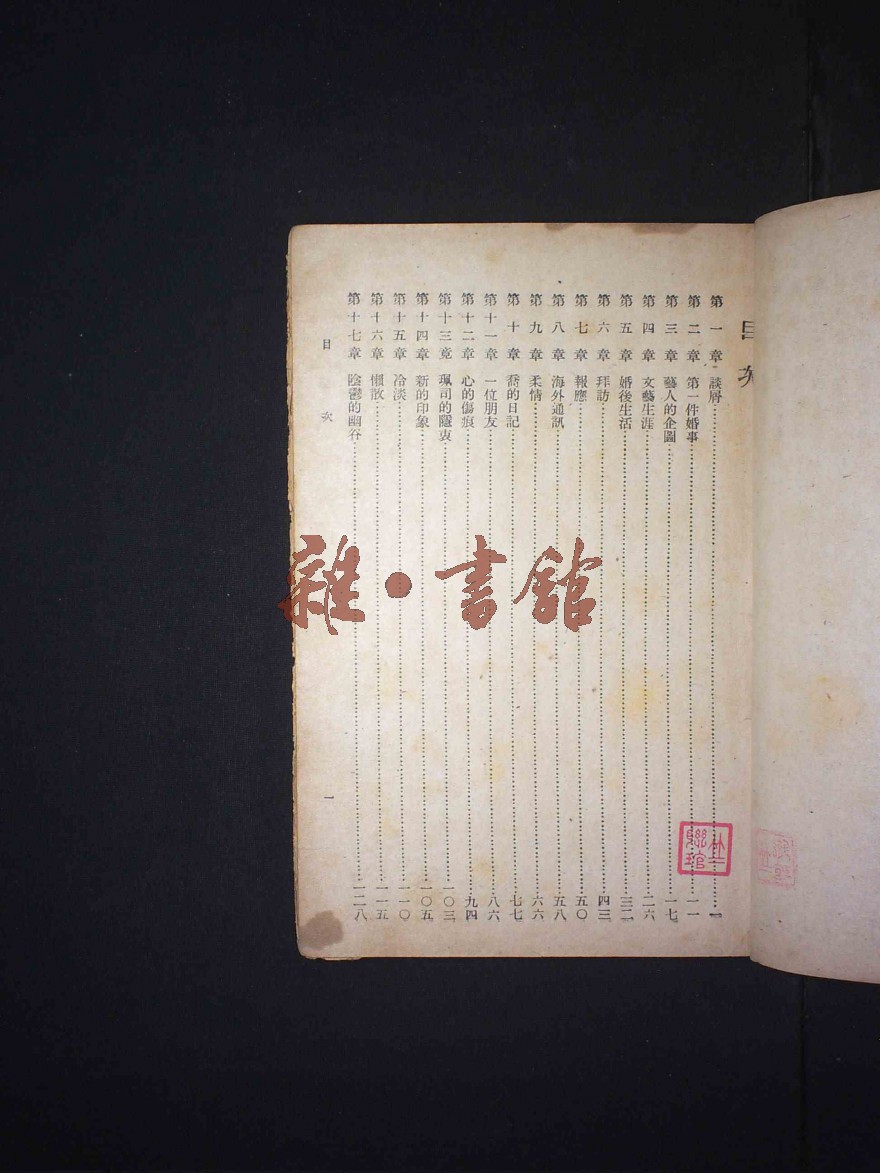 目次
第一章 談屑……一
第二章 第一件婚事……一一
第三章 藝人的企圖……一七
第四章 文藝生涯……二六
第五章 婚後生活……三二
第六章 拜訪……四三
第七章 報應……五〇
第八章 海外通訊……五八
第九章 柔情……六六
第十章 喬的日記……七七
第十一章 一位朋友……八六
第十二章 心的傷痕……九四
第十三章 珮司的隱衷……一〇三
第十四章 新的印象……一〇五
第十五章 冷淡……一一〇
第十六章 懶散……一一五
第十七章 陰鬱的幽谷……一二八
目次
一
雜·書館